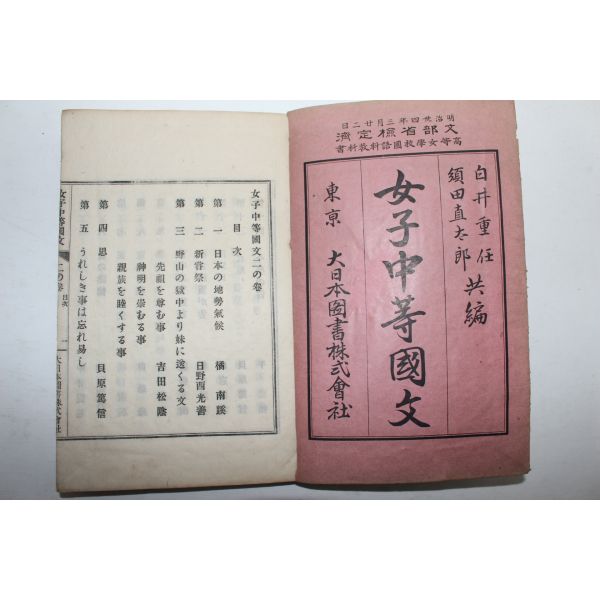 明治卅四年三月廿二日
文部省檢定濟
高等女學校國語科教科書
白井重任
須田直太郎
共編
女子中等國文
東京 大日本圖書株式會社
女子中等國文二の卷
目次
第一 日本の地勢氣候 橘南谿
第二 新嘗祭 日野西光善
第三 野山の獄中より妹に送くる文 吉田松陰
先祖を尊む事
神明を崇むる事
親族を睦くする事
第四 思 貝原篤信
第五 うれしき事は忘れ易し
女子中等國文 二の卷 目次 一 大日本圖書株式會社